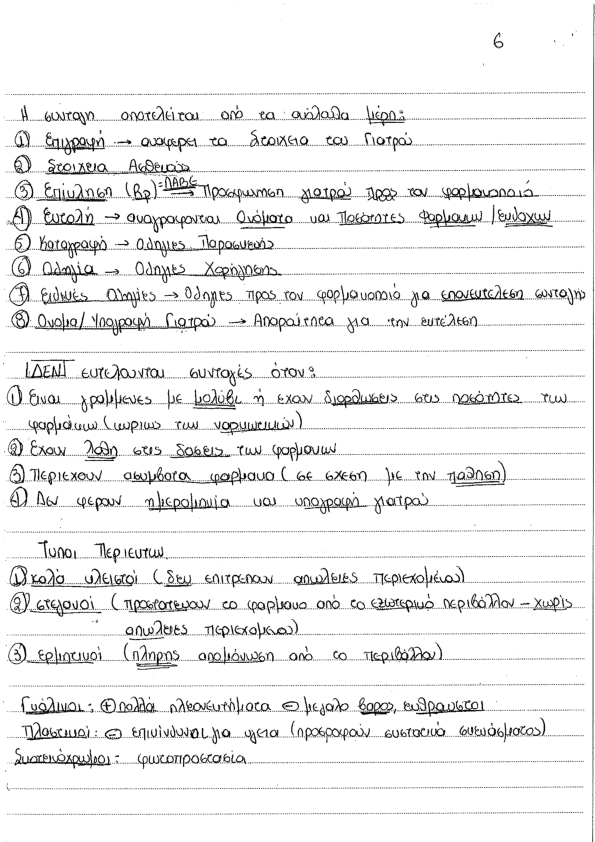 6
Η συνταγη αποτελείται από τα ακόλουθα μέρη:
① Επιγραφή → αναφερει τα Στοιχεια του Γιατρού
② Στοιχεια Ασθενούς
③ Επίκληση (Rp) =ΛΑΒΕ → Προσφωνηση γιατρού προς τον φαρμακοποιό
④ Εντολή → αναγραφονται Ονόματα και Ποσότητες Φαρμακων / Εκδοχων
⑤ Καταγραφή → Οδηγιες Παρασκευής
⑥ Οδηγία → Οδηγιες Χορήγησης
⑦ Ειδικές Οδηγίες → Οδηγιες προς τον φαρμακοποιό για επανεκτελεση συνταγής
⑧ Ονομα/Υπογραφή Γιατρού → Απαραίτητα για την εκτέλεση
ΔΕΝ εκτελουνται συνταγές όταν:
① Ειναι γραμμενες με μολύβι ή εχουν διορθωσεις στις ποσότητες των
φαρμάκων (κυριως των ναρκωτικών)
② Εχουν λαθη στις δοσεις των φαρμακων
③ Περιεχουν ασυμβατα φαρμακα (σε σχεση με την παθηση)
④ Δεν φερουν ημερομηνία και υπογραφή γιατρού
Τυποι Περιεκτων
① καλά κλειστοί (δεν επιτρεπουν απωλειες περιεχομένου)
② στεγανοί (προστατευουν το φαρμακο από το εξωτερικό περιβάλλον - χωρίς
απωλειες περιεχομενου)
③ ερμητικοί (πλήρης απομόνωση από το περιβάλλον)
Γυάλινοι: ⊕ πολλά πλεονεκτήματα ⊖ μεγαλο βαρος, ευθραυστοι
Πλαστικοί: ⊖ επικίνδυνοι για υγεια (προσροφούν συστατικά σκευάσματος)
Σκοτεινόχρωμοι: φωτοπροστασία